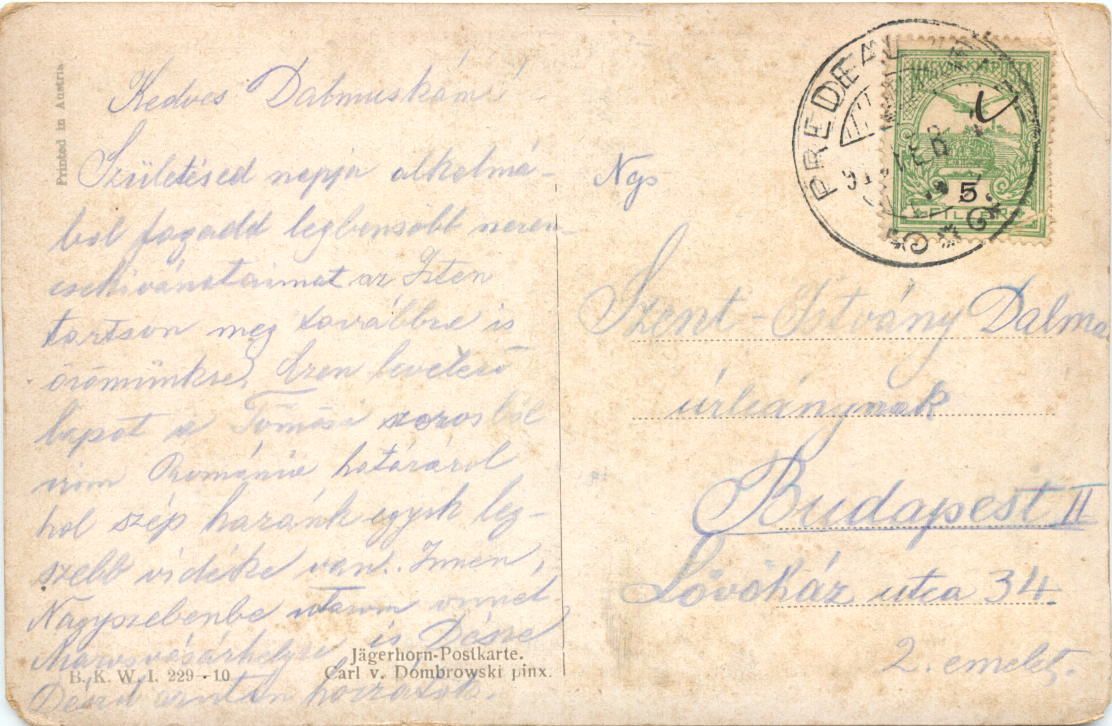 Printed in Austria
Kedves Dalmuskám!
Születésed napja alkalmá-
ból fogadd legbensőbb szeren-
csekivánataimat az Isten
tartson meg továbbra is
örömünkre. Ezen levelező
lapot a Tömösi szorosból
irom Románia határáról
hol szép hazánk egyik leg-
szebb vidéke van. Innen
Nagyszebenbe utazom onnet
Marosvásárhelyre is Désre
Jägerhorn-Postkarte.
B. K. W. I. 229-10
Carl v. Dombrowski pinx.
PREDEAL
MAGYAR KIR. POSTA
5
Ngs
Szent-Istvány Dalma
úrleánynak
Budapest II
Lövőház utca 34.
2. emelet.